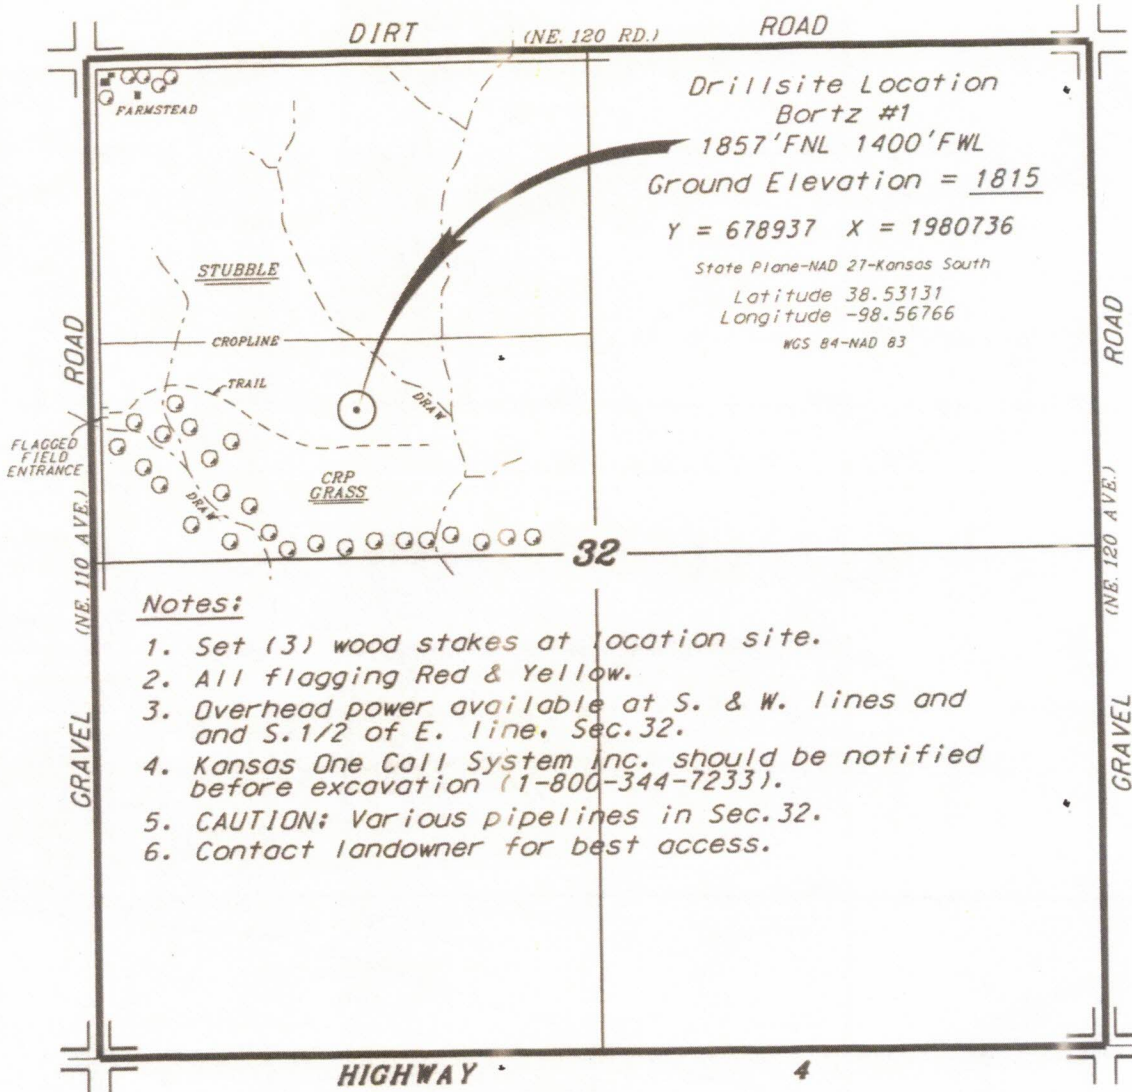 DIRT (NE. 120 RD.) ROAD
FARMSTEAD
Drillsite Location
Bortz #1
1857'FNL 1400'FWL
Ground Elevation = 1815
Y = 678937 X = 1980736
State Plane-NAD 27-Kansas South
Latitude 38.53131
Longitude -98.56766
WGS 84-NAD 83
STUBBLE
CROPLINE
TRAIL
DRAW
FLAGGED
FIELD
ENTRANCE
CRP
GRASS
DRAW
32
GRAVEL (NE. 110 AVE.) ROAD
GRAVEL (NE. 120 AVE.) ROAD
Notes:
1. Set (3) wood stakes at location site.
2. All flagging Red & Yellow.
3. Overhead power available at S. & W. lines and
and S.1/2 of E. line. Sec.32.
4. Kansas One Call System Inc. should be notified
before excavation (1-800-344-7233).
5. CAUTION: Various pipelines in Sec.32.
6. Contact landowner for best access.
HIGHWAY 4